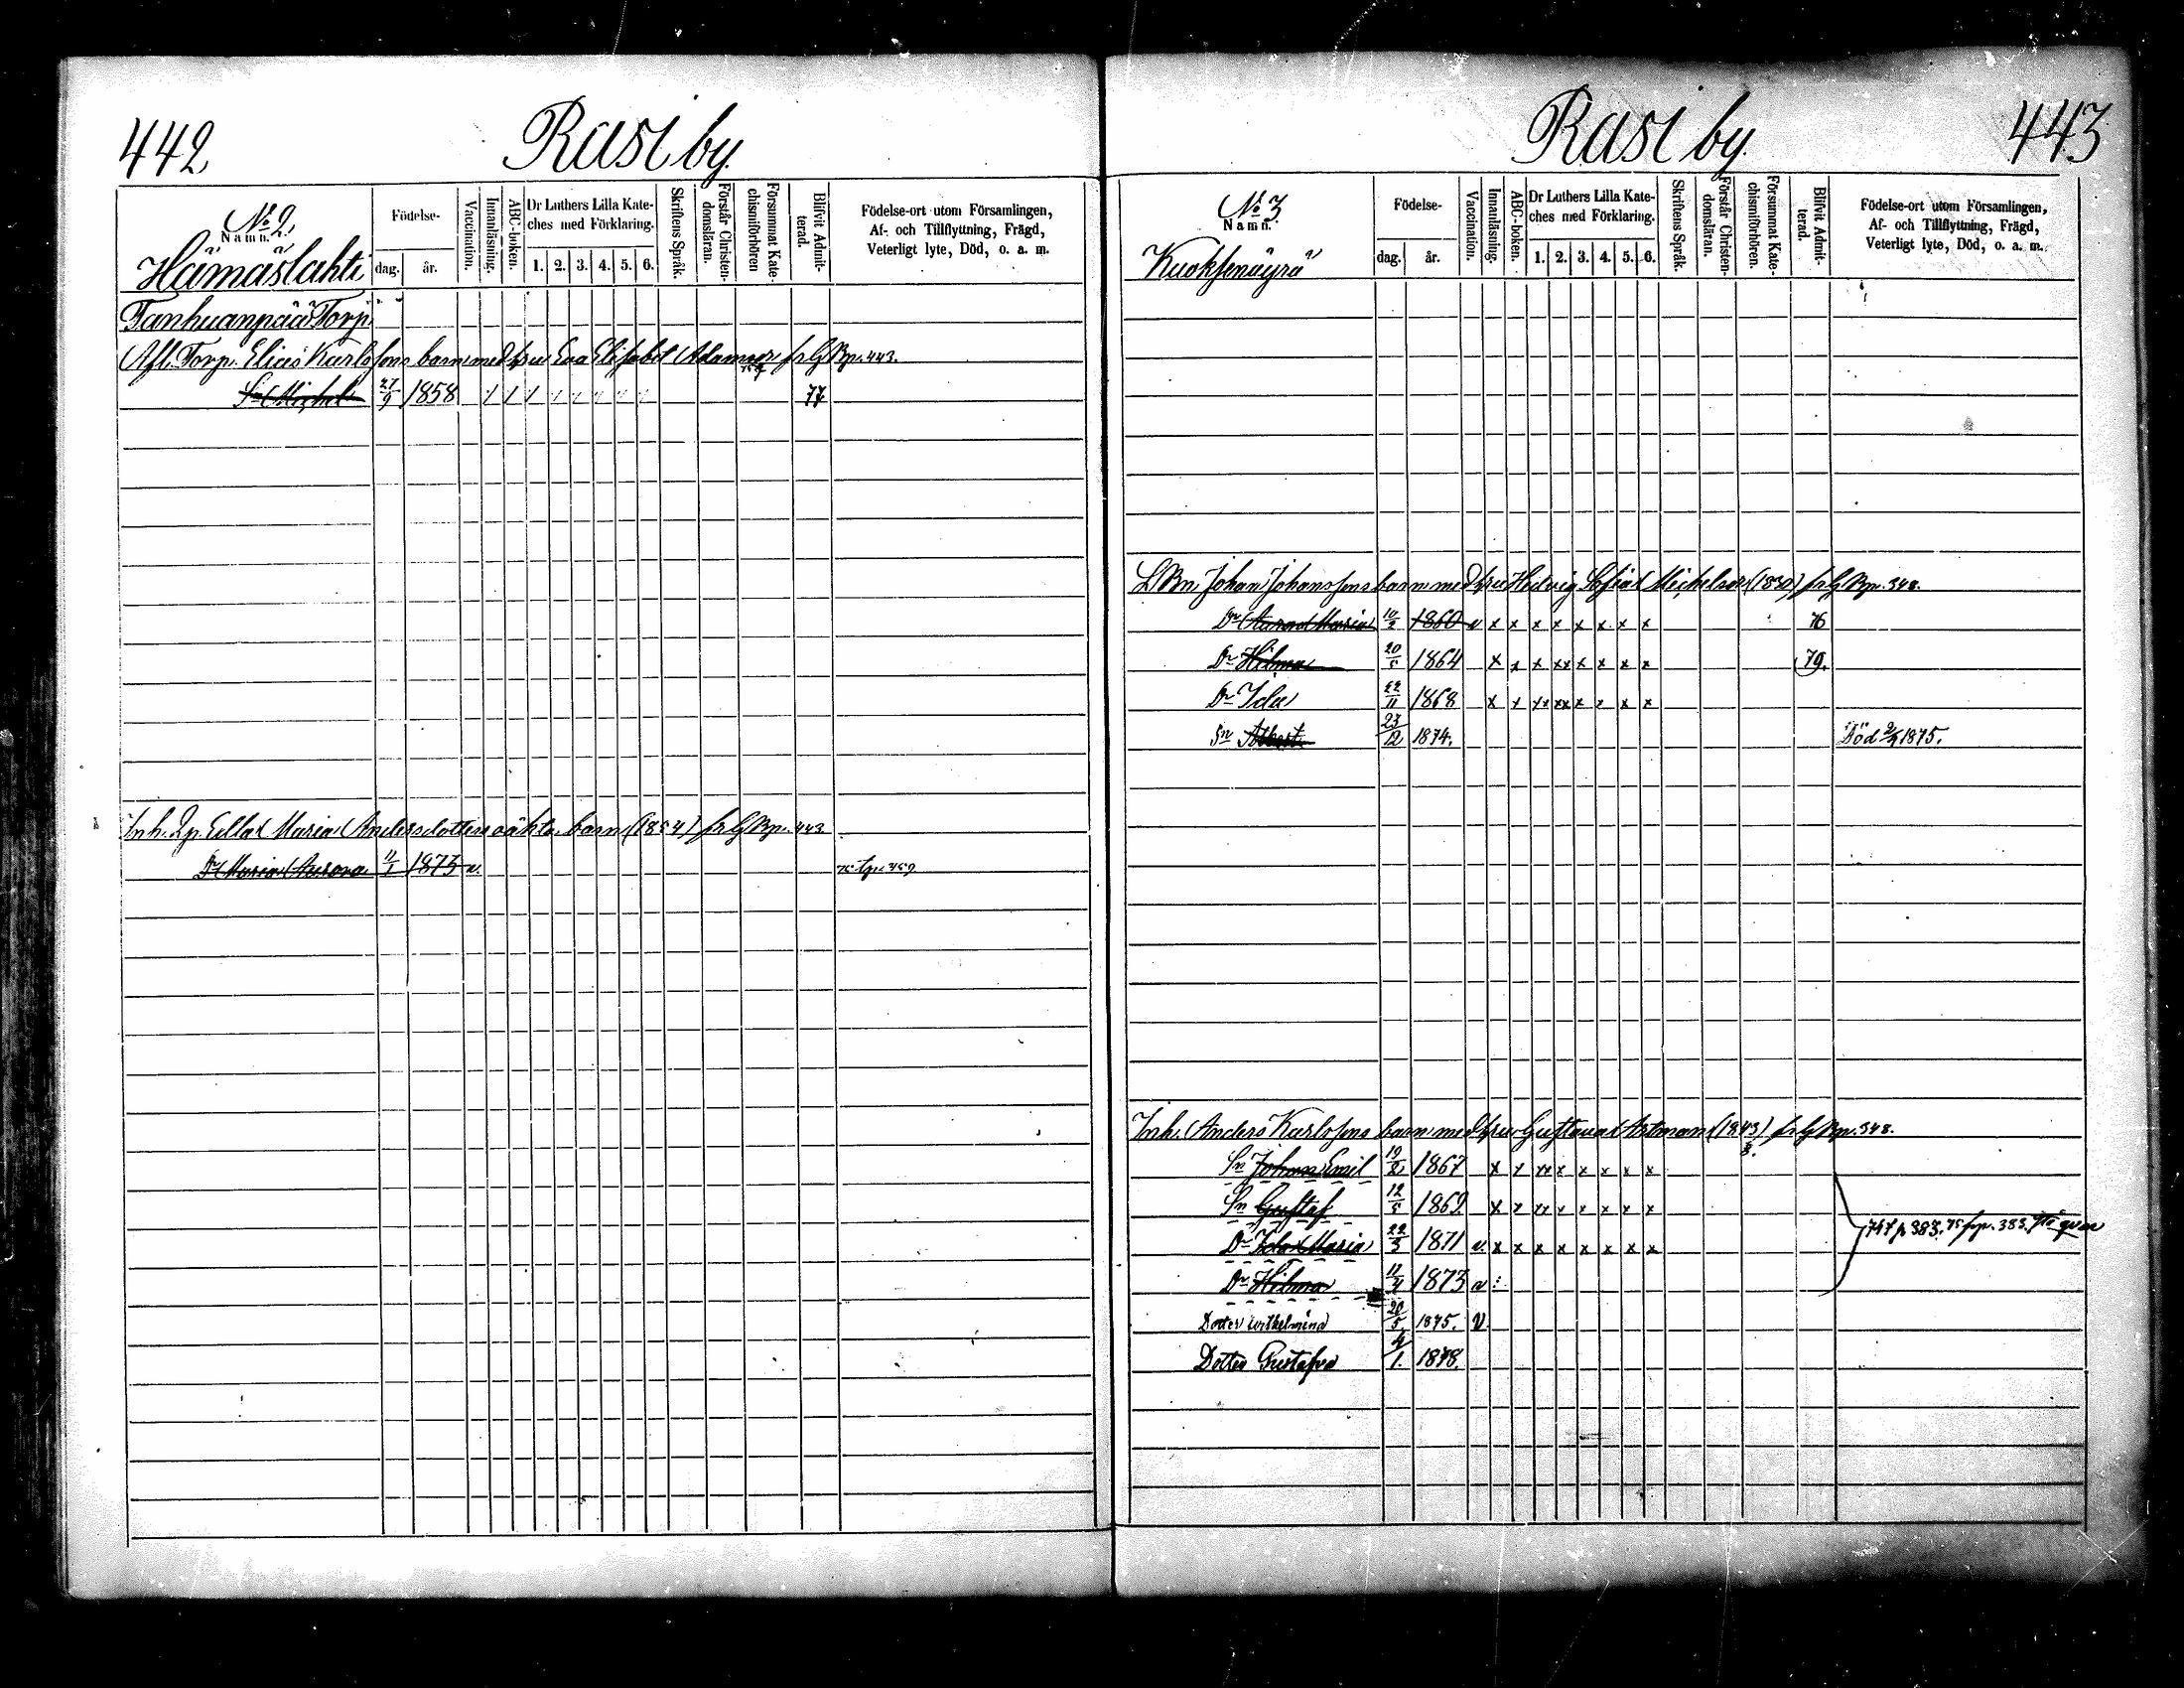 442
Rasi by.
No 2.
Namn.
Hämäslahti
Födelse-
dag.
år.
Vaccination.
Innanläsning.
ABC-boken.
Dr Luthers Lilla Kate-
ches med Förklaring.
1. 2. 3. 4. 5. 6.
Skriftens Språk.
Förstår Christen-
domsläran.
Försummat Kate-
chismiförhören
Blifvit Admit-
terad.
Födelse-ort utom Församlingen,
Af- och Tillflyttning, Frägd,
Veterligt lyte, Död, o. a. m.
Tanhuanpää Torp.
Afl. Torp. Elias Karlssons barn med hu Eva Elisabet Adamsr Bp. 443.
Sn Michel 27/9 1858 77
Inh. Ella Maria Andersdotters oäkta barn (1854) Bp. 443
Dr Maria Aurora 11/1 1873 v.
443
Rasi by.
No 3.
Namn.
Kuoksenäyrä
Födelse-
dag.
år.
Vaccination.
Innanläsning.
ABC-boken.
Dr Luthers Lilla Kate-
ches med Förklaring.
1. 2. 3. 4. 5. 6.
Skriftens Språk.
Förstår Christen-
domsläran.
Försummat Kate-
chismiförhören.
Blifvit Admit-
terad.
Födelse-ort utom Församlingen,
Af- och Tillflyttning, Frägd,
Veterligt lyte, Död, o. a. m.
Johan Johanssons barn med hu Hedvig Sofia Michelsdr (1830) Bp. 348.
Dr Aurora Maria 10/2 1860 v x x x x x x x x 76
Dr Hilma 20/5 1864 x x x xx x x x x 79.
Dr Ida 22/11 1868 x x xx xx x x x x
Sn Albert 23/12 1874. Död 1875.
Inh. Anders Karlssons barn med hu Gustava Artman (1843) Bp. 348.
Sn Johan Emil 19/2 1867 x x xx x x x x x
Sn Gustaf 12/5 1869 x x xx x x x x x
Dr Ida Maria 22/3 1871 v. x x x x x x x x
Dr Hilma 11/4 1873 v
Dotter Wilhelmina 20/5 1875. V.
Dotter Gustafva 4/1. 1878